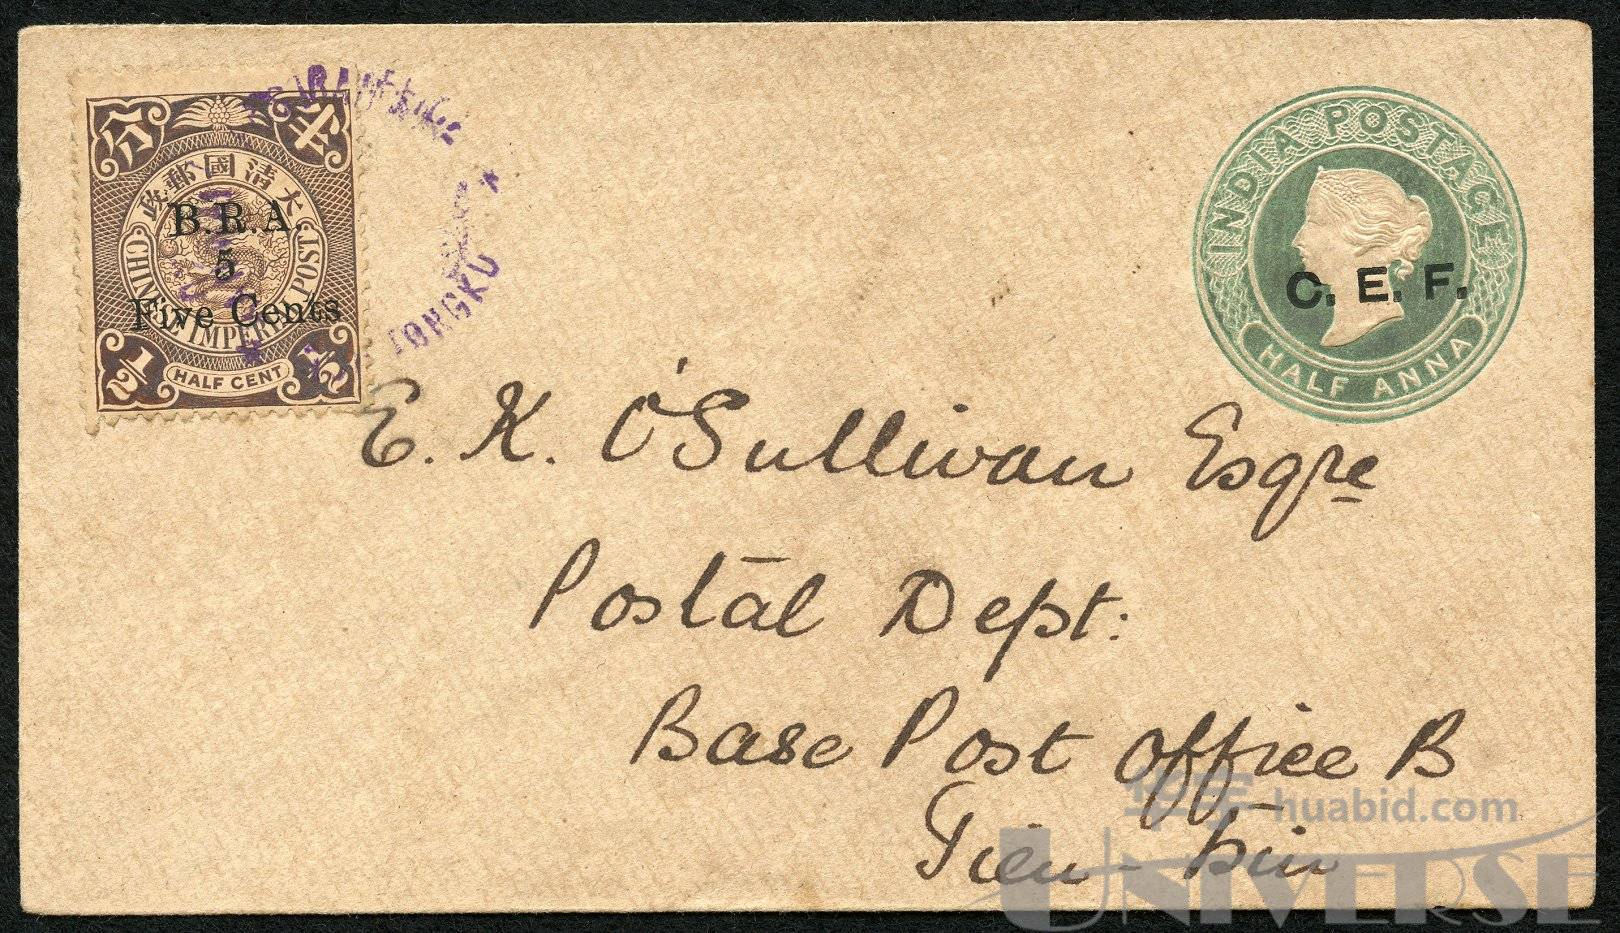 分 半
大清國郵政
CHINESE IMPERIAL POST
B.R.A.
5
Five Cents
1/2 HALF CENT 1/2
TONGKU
INDIA POSTAGE
C. E. F.
HALF ANNA
E. K. O'Sullivan Esqre
Postal Dept:
Base Post Office B
Tien-tsin
华宇 huabid.com
UNIVERSE